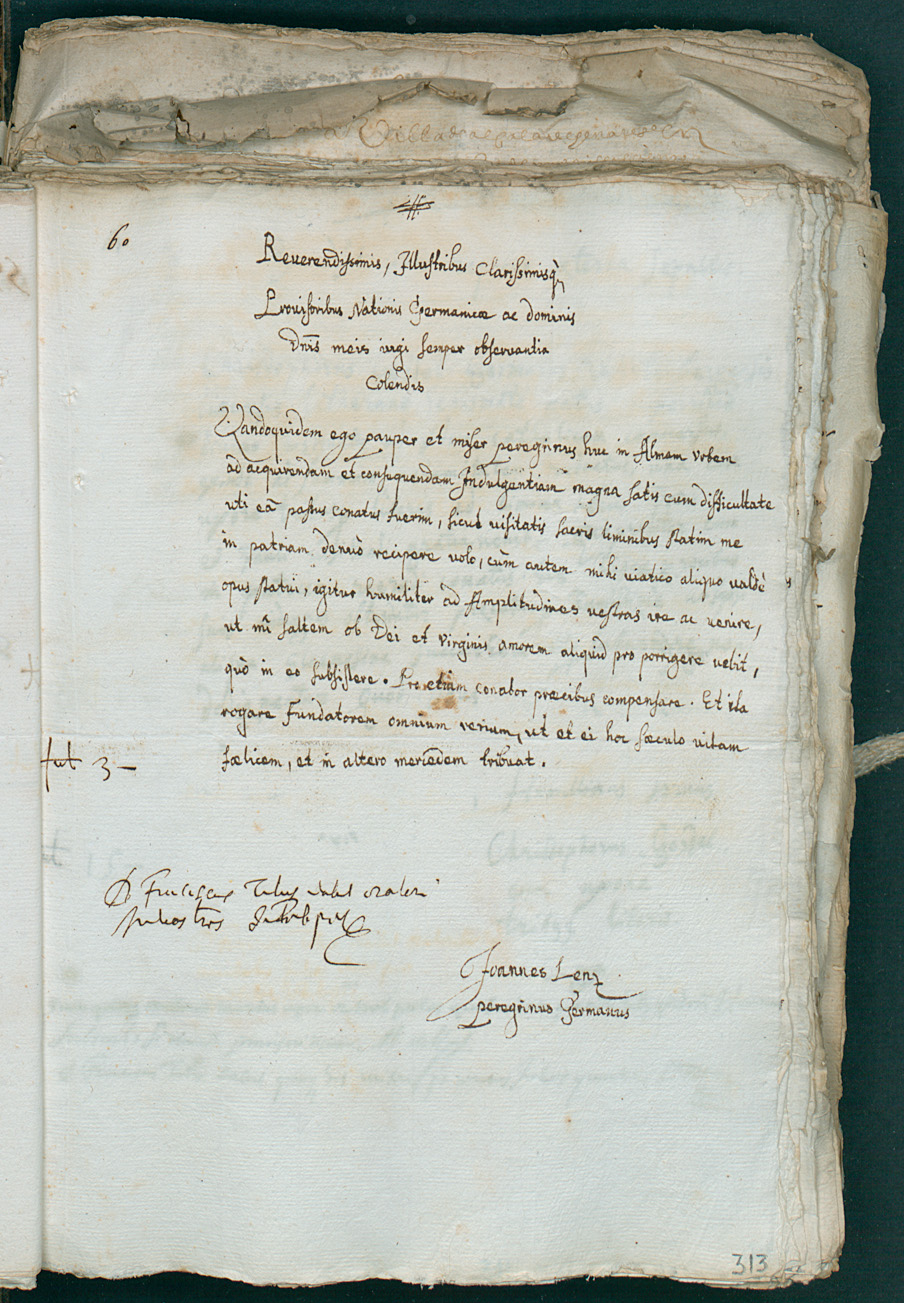 60
Reverendissimis, Illustribus Clarissimisq
Provisoribus Nationis Germanicæ ac dominis
Dnis meis semper observantia
Colendis
Quandoquidem ego pauper et miser peregrinus huc in Almam vrbem
ad acquirendam et consequendam Indulgentiam magna satis cum difficultate
uti eā passus conatus fuerim, sicut visitatis sacris liminibus statim me
in patriam denuò recipere volo, cùm autem mihi viatico aliquo valdè
opus statui, igitur humiliter ad Amplitudines vestras ire ac venire,
ut mī saltem ob Dei et virginis amorem aliquid pro porrigere velit,
quò in eo subsistere. Pro etiam conabor præcibus compensare. Et ita
rogare Fundatorem omnium rerium, ut et ei hoc sæculo vitam
fælicem, et in altero mercedem tribuat.
3 –
Joannes Lenz
peregrinus Germanus
313